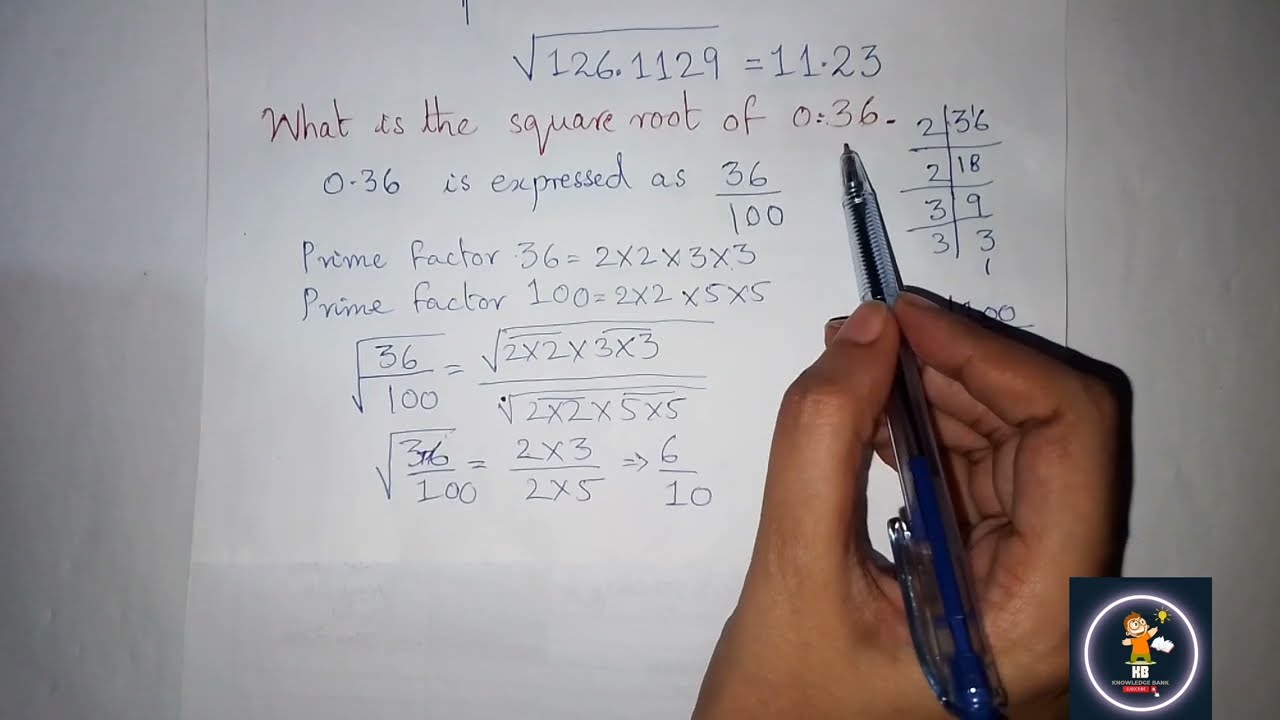 √126.1129 = 11.23
What is the square root of 0.36.
0.36 is expressed as 36/100
Prime factor 36 = 2×2×3×3
Prime factor 100 = 2×2×5×5
√36/100 = √2×2×3×3 / √2×2×5×5
√36/100 = 2×3 / 2×5 ⇒ 6/10
2 | 36
2 | 18
3 | 9
3 | 3
1
KB
KNOWLEDGE BANK
SUBSCRIBE